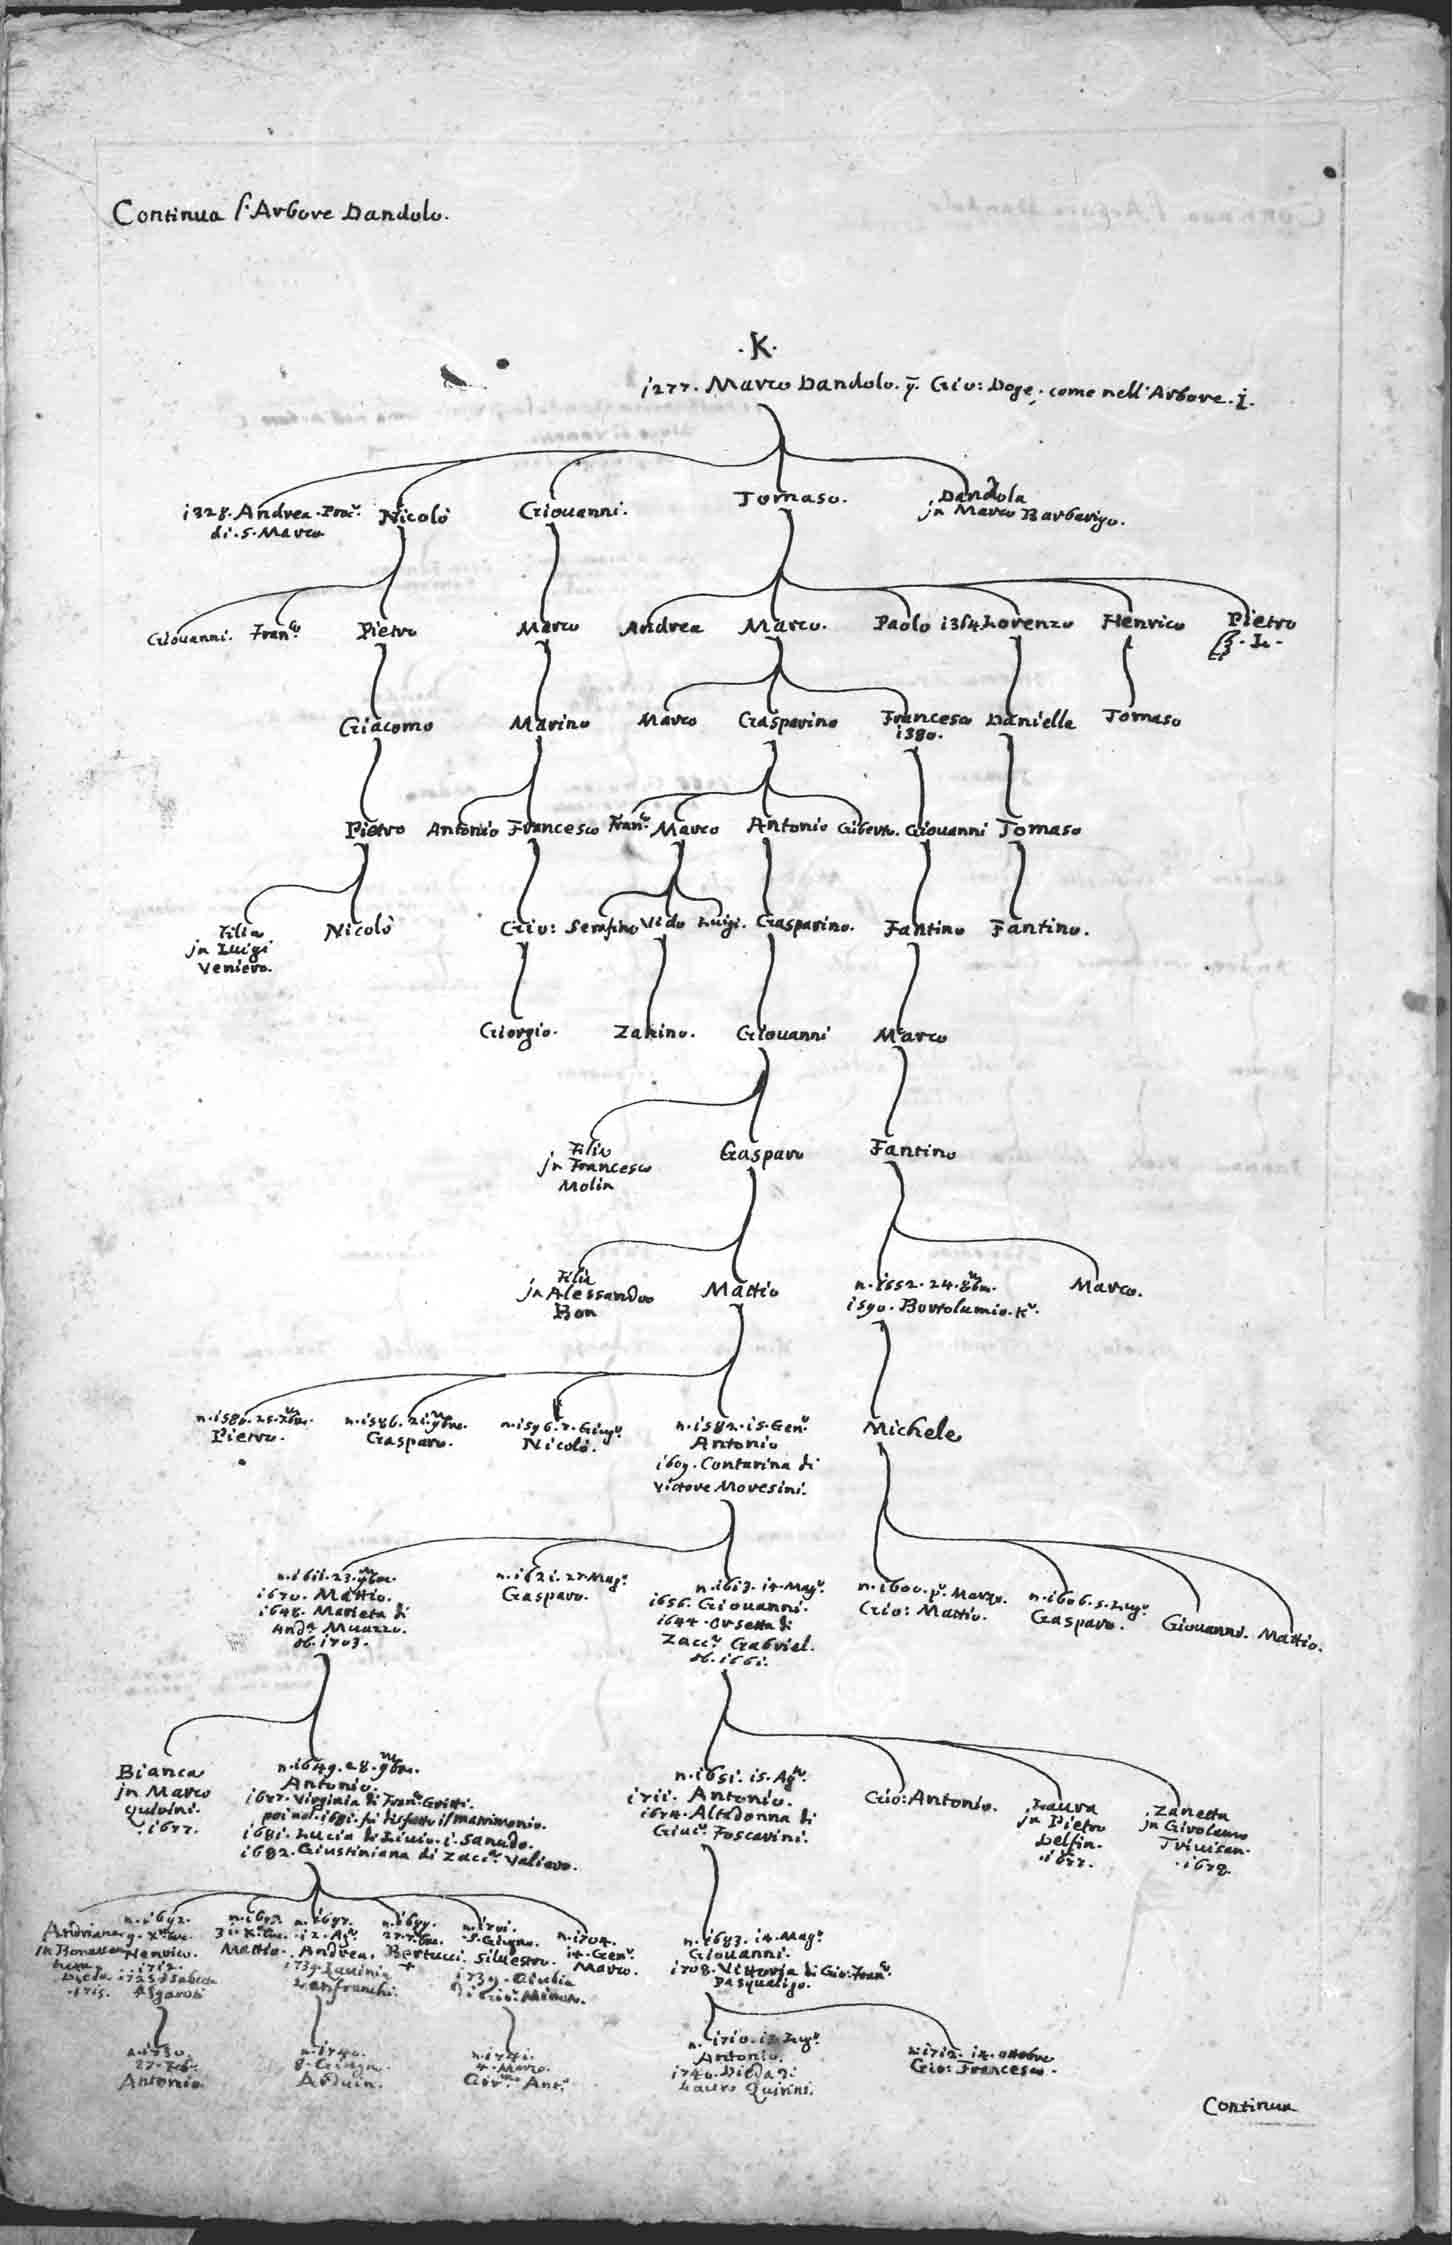 Continua l'Arbore Dandolo.
.K.
1277. Marco Dandolo. q. Gio: Doge, come nell'Arbore. I.
1328. Andrea Procr.
di S. Marco
Nicolò
Giouanni.
Tomaso.
Dandola
in Marco Barbarigo.
Giouanni. Franco.
Pietro
Marco
Andrea
Marco.
Paolo
1364 Lorenzo
Henrico
Pietro
L.
Giacomo
Marino
Marco
Gasparino
Francesco
1380.
Danielle
Tomaso
Pietro
Antonio
Francesco
Franco.
Marco
Antonio
Giberto.
Giouanni
Tomaso
Filia
in Luigi
Veniero.
Nicolò
Gio:
Serafino
Vido
Luigi.
Gasparino.
Fantino
Fantino.
Giorgio.
Zanino.
Giouanni
Marco
Filia
in Francesco
Molin
Gasparo
Fantino
Filia
in Alessandro
Bon
Mattio
n. 1552. 24. 8bre.
1590. Bortolamio. Kr.
Marco.
n. 1580. 25.
Pietro.
n. 1586. 21. 9bre.
Gasparo.
n. 1596. 7. Giugo.
Nicolò.
n. 1582. 15. Geno.
Antonio
1609. Contarina di
Vettore Moresini.
Michele
n. 1611. 23. 9bre.
1670. Mattio.
1648. Marieta di
Anda. Muazzo.
ob. 1703.
n. 1621. 27. Mago.
Gasparo.
n. 1613. 14. Mago.
1656. Giouanni.
1644. Orsetta di
Zacca. Gabriel.
ob. 1661.
n. 1600. po. Marzo.
Gio: Mattio.
n. 1606. 5. Lugo.
Gasparo.
Giouanni.
Mattio.
Bianca
in Marco
Quirini.
1677.
n. 1649. 28. 9bre.
Antonio.
1677. Virginia di Franco. Gritti.
poi nel 1681. fù disfatto il matrimonio.
1681. Lucia di Liuio. 1. Sanudo.
1682. Giustiniana di Zacca. Valiero.
n. 1651. 15. Ago.
1711. Antonio.
1674. Altadonna di
Foscarini.
Gio: Antonio.
Laura
in Pietro
Delfin.
1677.
Zanetta
in Girolamo
Triuisan.
1678.
Andriana
in Bonauentura
1715.
n. 1692.
9. Xbre.
Henrico.
1712.
Mattio.
n. 1697.
12. Ago.
Andrea.
1739. Lauinia
Lanfranchi.
n. 1699.
Bertucci.
+
n. 1701.
5. Giugno.
Siluestro.
1739.
n. 1704.
14. Geno.
Marco.
n. 1683. 14. Mago.
Giouanni.
1708. Vittoria di Gio: Franco.
Pasqualigo.
n. 1730.
27. Feb.
Antonio.
n. 1740.
8. Giugno.
Arduin.
n. 1741.
4. Marzo.
Anto.
n. 1710. 13. Lugo.
Antonio.
1740. Dieda di
Lauro Quirini.
n. 1712. 14. ottobre
Gio: Francesco.
Continua